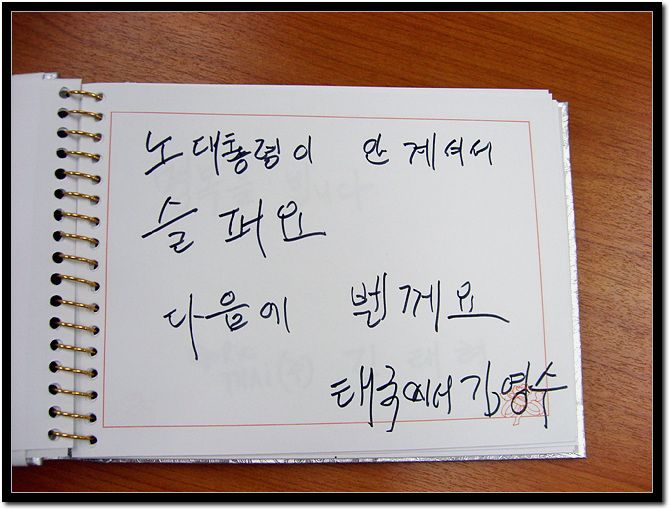 노대통령이 안계셔서
슬퍼요
다음에
태국에서 김영수